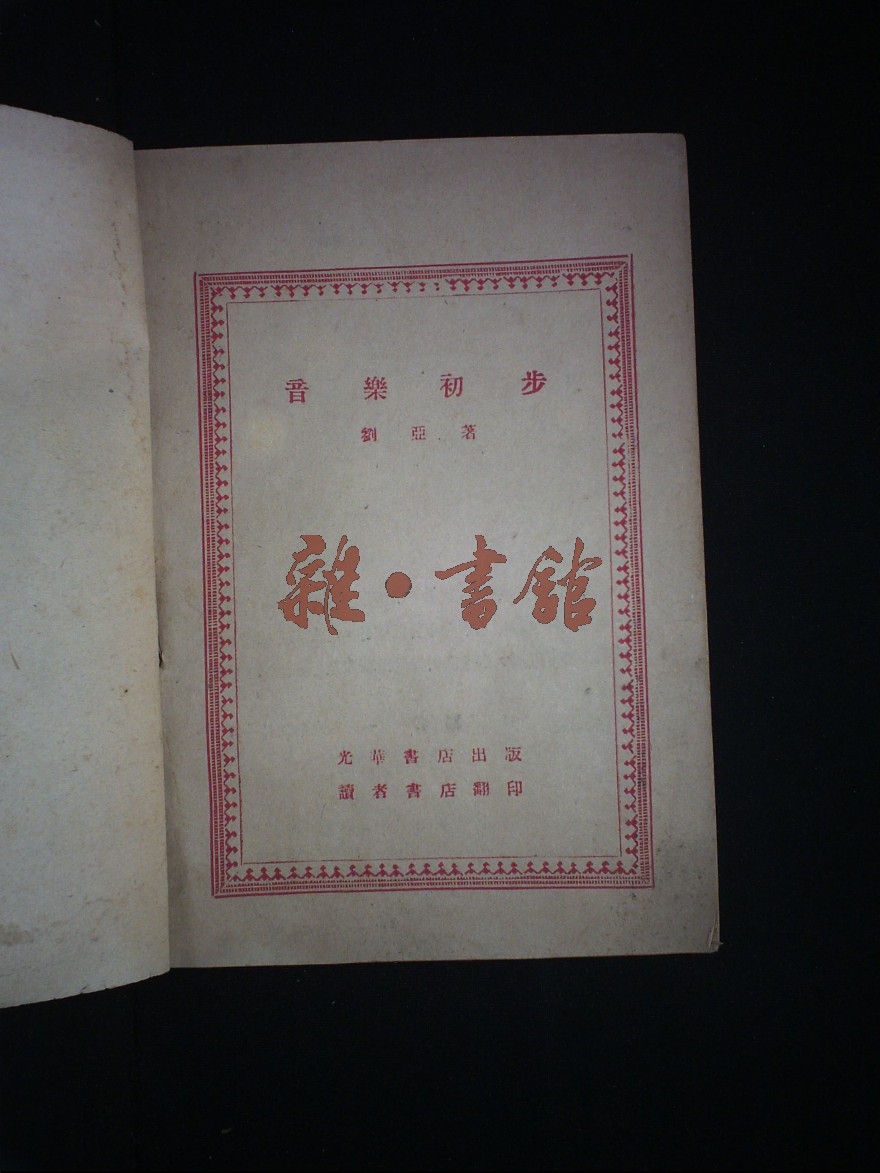 音樂初步
劉亞著
雜·書館
光華書店出版
讀者書店翻印